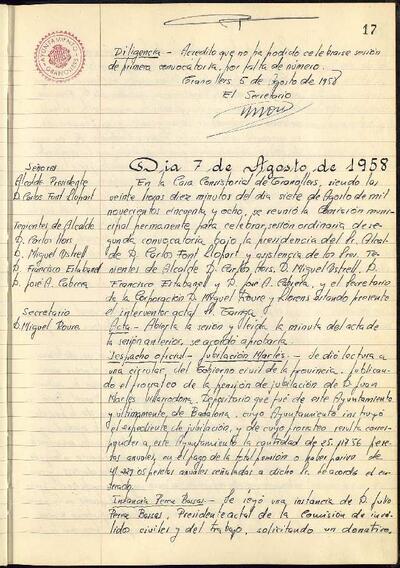 17
AYUNTAMIENTO
GRANOLLERS
Diligencia - Acredito que no ha podido celebrarse sesión
de primera convocatoria, por falta de número.
Granollers 5 de Agosto de 1958
El Secretario
Día 7 de Agosto de 1958
Señores
Alcalde Presidente
D. Carlos Font Llopart
Tenientes de Alcalde
D. Carlos Llors
D. Miguel Astrell
D. Francisco Estabanel
D. José A. Cabrera
Secretario
D. Miguel Roure
En la Casa Consistorial de Granollers, siendo las
veinte horas diez minutos del día siete de Agosto de mil
novecientos cincuenta y ocho, se reunió la Comisión muni-
cipal permanente para celebrar sesión ordinaria de se-
gunda convocatoria bajo la presidencia del Sr. Alcal-
de D. Carlos Font Llopart y asistencia de los Sres. Te-
nientes de Alcalde D. Carlos Llors, D. Miguel Astrell, D.
Francisco Estabanel y D. José A. Cabrera, y el secretario
de la Corporación D. Miguel Roure y Llorens estando presente
el interventor actal
Acta - Abierta la sesión y leída la minuta del acta de
la sesión anterior, se acordó aprobarla
Despacho oficial - Jubilación Marlés - Se dió lectura a
una circular del Gobierno civil de la provincia, publican-
do el prorrateo de la pensión de jubilación de D. Juan
Marlés Villarrodona, Depositario que fué de este Ayuntamiento
y últimamente, de Badalona, cuyo Ayuntamiento instruyó
el expediente de jubilación, y de cuyo prorrateo resulta corres-
ponder a este Ayuntamiento la cantidad de 25.117'56 pese-
tas anuales, en el pago de la total pensión o haber pasivo de
pesetas anuales señaladas a dicho Sr. Se acordó el en-
terado.
Instancia Perez Bassas - Se leyó una instancia de D. Julio
Perez Bassas, Presidente actal de la Comisión de invá-
lidos civiles y del trabajo, solicitando un donativo,